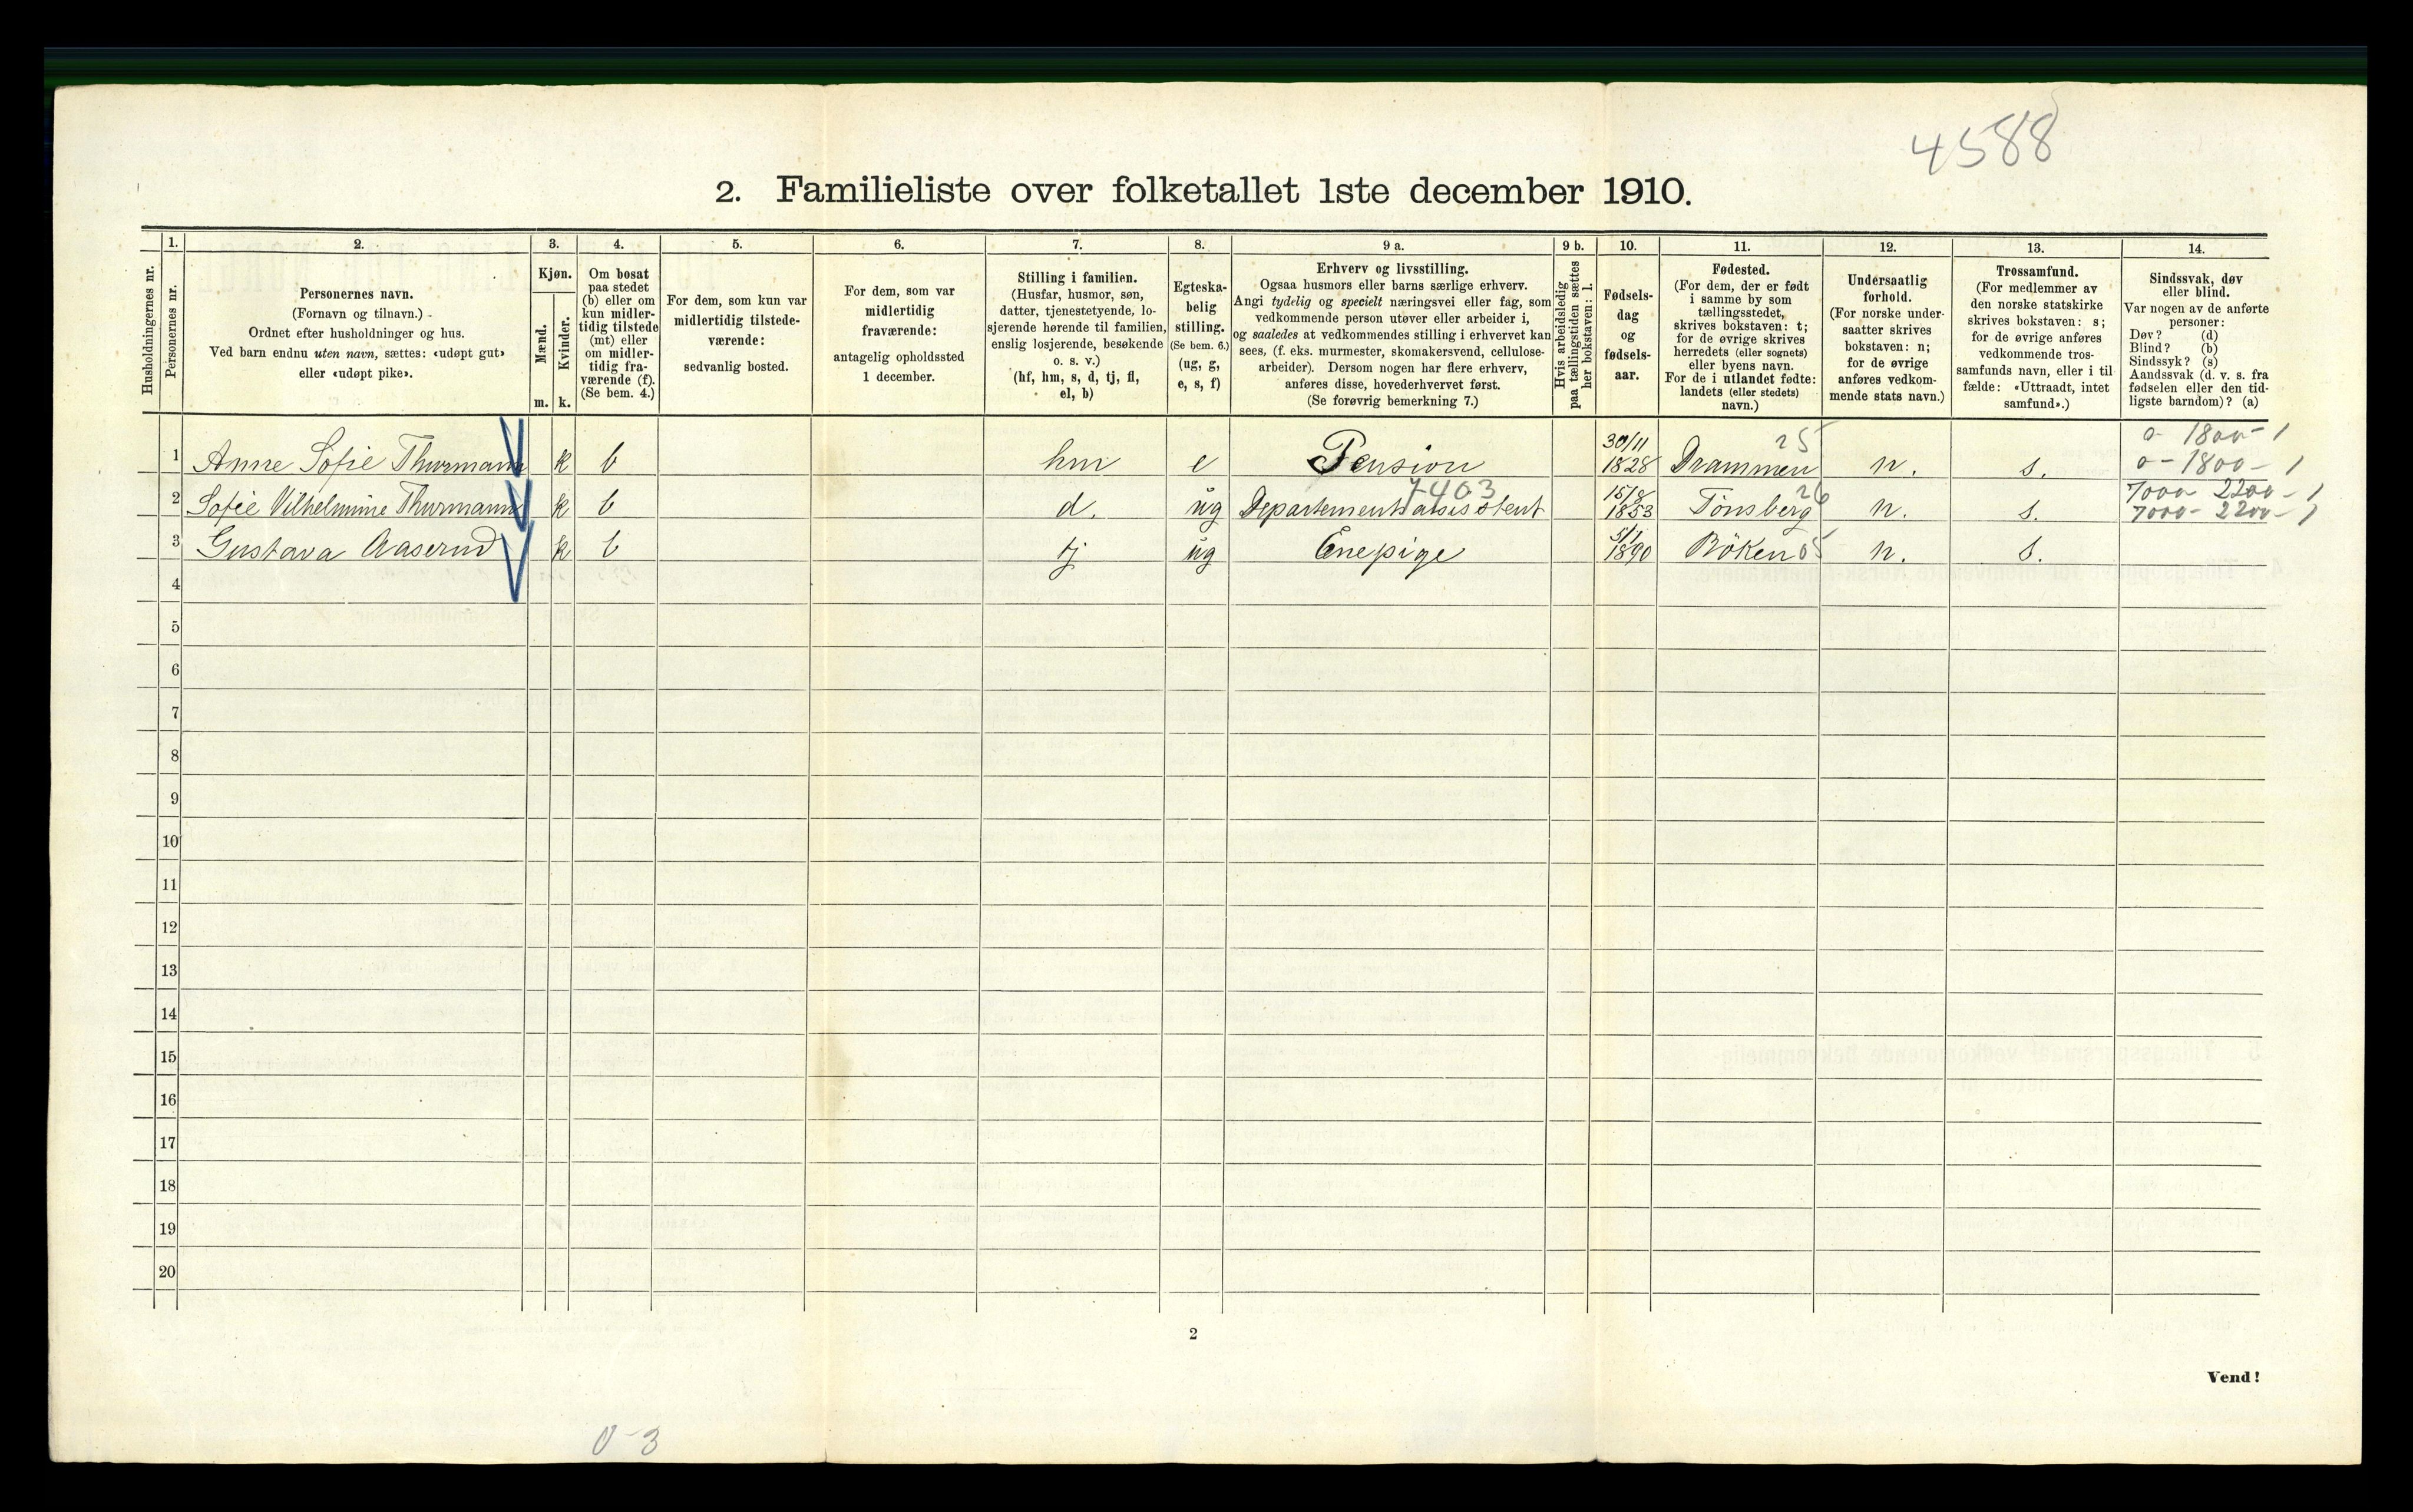 4588
2. Familieliste over folketallet 1ste december 1910.
Husholdningernes nr.
1.
Personernes nr.
2.
Personernes navn.
(Fornavn og tilnavn.)
Ordnet efter husholdninger og hus.
Ved barn endnu uten navn, sættes: «udøpt gut»
eller «udøpt pike».
3.
Kjøn.
Mænd.
Kvinder.
m. k.
4.
Om bosat
paa stedet
(b) eller om
kun midler-
tidig tilstede
(mt) eller
om midler-
tidig fra-
værende (f).
(Se bem. 4.)
5.
For dem, som kun var
midlertidig tilstede-
værende:
sedvanlig bosted.
6.
For dem, som var
midlertidig
fraværende:
antagelig opholdssted
1 december.
7.
Stilling i familien.
(Husfar, husmor, søn,
datter, tjenestetyende, lo-
sjerende hørende til familien,
enslig losjerende, besøkende
o. s. v.)
(hf, hm, s, d, tj, fl,
el, b)
8.
Egteska-
belig
stilling.
(Se bem. 6.)
(ug, g,
e, s, f)
9 a.
Erhverv og livsstilling.
Ogsaa husmors eller barns særlige erhverv.
Angi tydelig og specielt næringsvei eller fag, som
vedkommende person utøver eller arbeider i,
og saaledes at vedkommendes stilling i erhvervet kan
sees, (f. eks. murmester, skomakersvend, cellulose-
arbeider). Dersom nogen har flere erhverv,
anføres disse, hovederhvervet først.
(Se forøvrig bemerkning 7.)
9 b.
Hvis arbeidsledig
paa tællingstiden sættes
her bokstaven: l.
10.
Fødsels-
dag
og
fødsels-
aar.
11.
Fødested.
(For dem, der er født
i samme by som
tællingsstedet,
skrives bokstaven: t;
for de øvrige skrives
herredets (eller sognets)
eller byens navn.
For de i utlandet fødte:
landets (eller stedets)
navn.)
12.
Undersaatlig
forhold.
(For norske under-
saatter skrives
bokstaven: n;
for de øvrige
anføres vedkom-
mende stats navn.)
13.
Trossamfund.
(For medlemmer av
den norske statskirke
skrives bokstaven: s;
for de øvrige anføres
vedkommende tros-
samfunds navn, eller i til
fælde: «Uttraadt, intet
samfund».)
14.
Sindssvak, døv
eller blind.
Var nogen av de anførte
personer:
Døv? (d)
Blind? (b)
Sindssyk? (s)
Aandssvak (d. v. s. fra
fødselen eller den tid-
ligste barndom)? (a)
1 Anne Sofie Thurmann k b hm e Pension 30/11 1828 Drammen 25 n. s. 0 - 1800 - 1
0 - 1800 - 1
2 Sofie Vilhelmine Thurmann k b d. ug Departementsassistent 7403 15/8 1853 Tönsberg 26 n. s. 7000 - 2200 - 1
7000 - 2200 - 1
3 Gustava Aaserud k b tj ug Enepige 5/1 1890 Röken 05 n. s.
4
5
6
7
8
9
10
11
12
13
14
15
16
17
18
19
20
2
Vend!
0-3